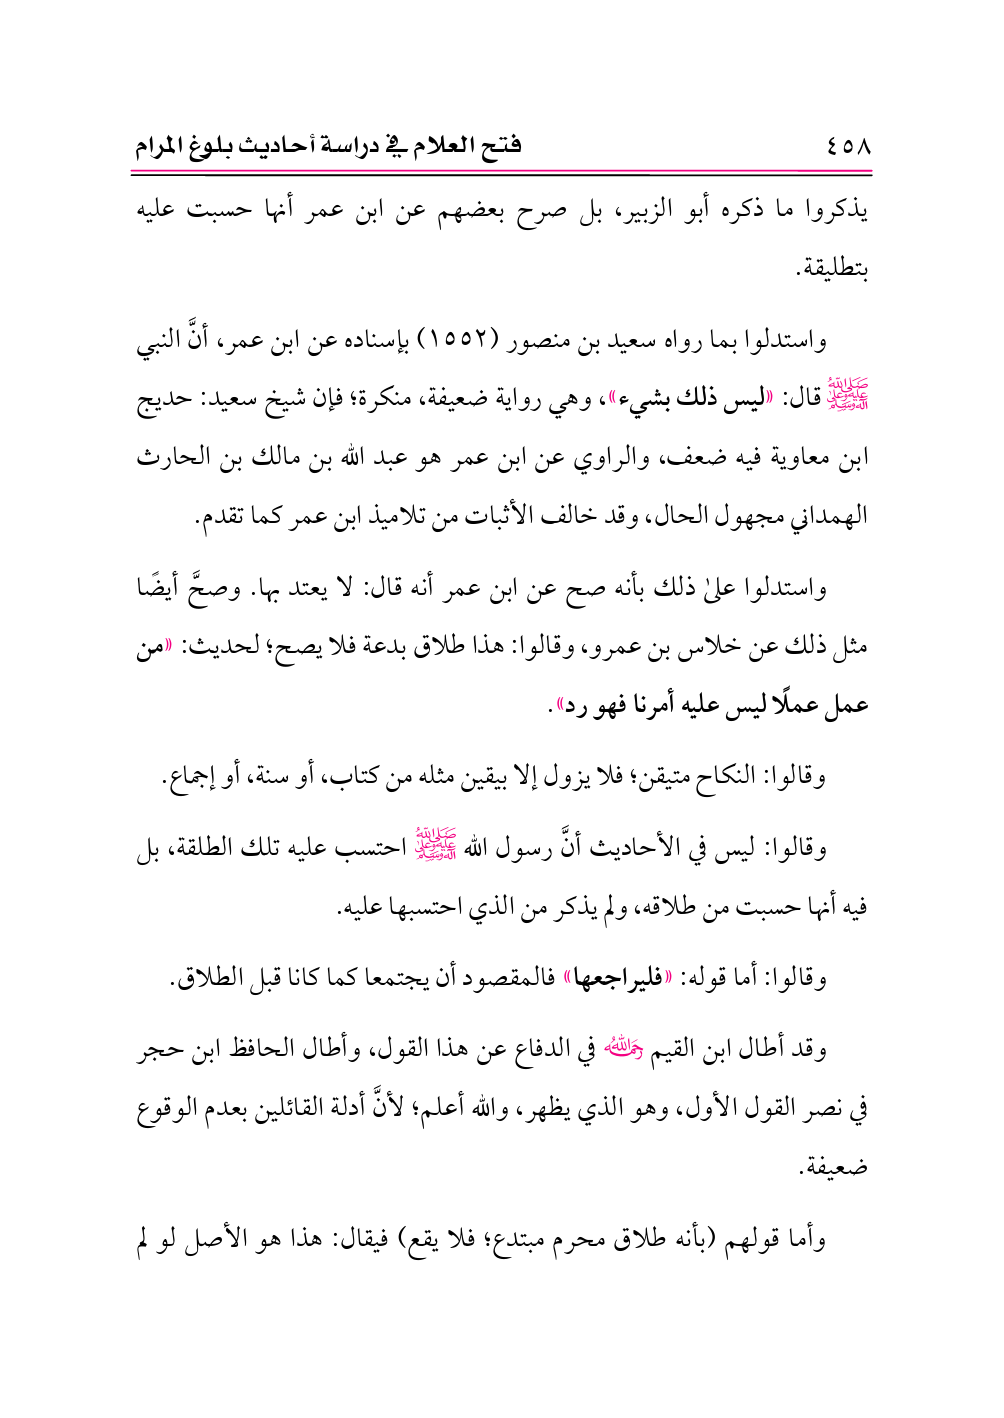 ٤٥٨ فتح العلام في دراسة أحاديث بلوغ المرام
يذكروا ما ذكره أبو الزبير، بل صرح بعضهم عن ابن عمر أنها حسبت عليه
بتطليقة.
واستدلوا بما رواه سعيد بن منصور (١٥٥٢) بإسناده عن ابن عمر، أنَّ النبي
ﷺ قال: «ليس ذلك بشيء»، وهي رواية ضعيفة، منكرة؛ فإن شيخ سعيد: حديج
ابن معاوية فيه ضعف، والراوي عن ابن عمر هو عبد الله بن مالك بن الحارث
الهمداني مجهول الحال، وقد خالف الأثبات من تلاميذ ابن عمر كما تقدم.
واستدلوا علىٰ ذلك بأنه صح عن ابن عمر أنه قال: لا يعتد بها. وصحَّ أيضًا
مثل ذلك عن خلاس بن عمرو، وقالوا: هذا طلاق بدعة فلا يصح؛ لحديث: «من
عمل عملًا ليس عليه أمرنا فهو رد».
وقالوا: النكاح متيقن؛ فلا يزول إلا بيقين مثله من كتاب، أو سنة، أو إجماع.
وقالوا: ليس في الأحاديث أنَّ رسول الله ﷺ احتسب عليه تلك الطلقة، بل
فيه أنها حسبت من طلاقه، ولم يذكر من الذي احتسبها عليه.
وقالوا: أما قوله: «فليراجعها» فالمقصود أن يجتمعا كما كانا قبل الطلاق.
وقد أطال ابن القيم رحمه الله في الدفاع عن هذا القول، وأطال الحافظ ابن حجر
في نصر القول الأول، وهو الذي يظهر، والله أعلم؛ لأنَّ أدلة القائلين بعدم الوقوع
ضعيفة.
وأما قولهم (بأنه طلاق محرم مبتدع؛ فلا يقع) فيقال: هذا هو الأصل لو لم